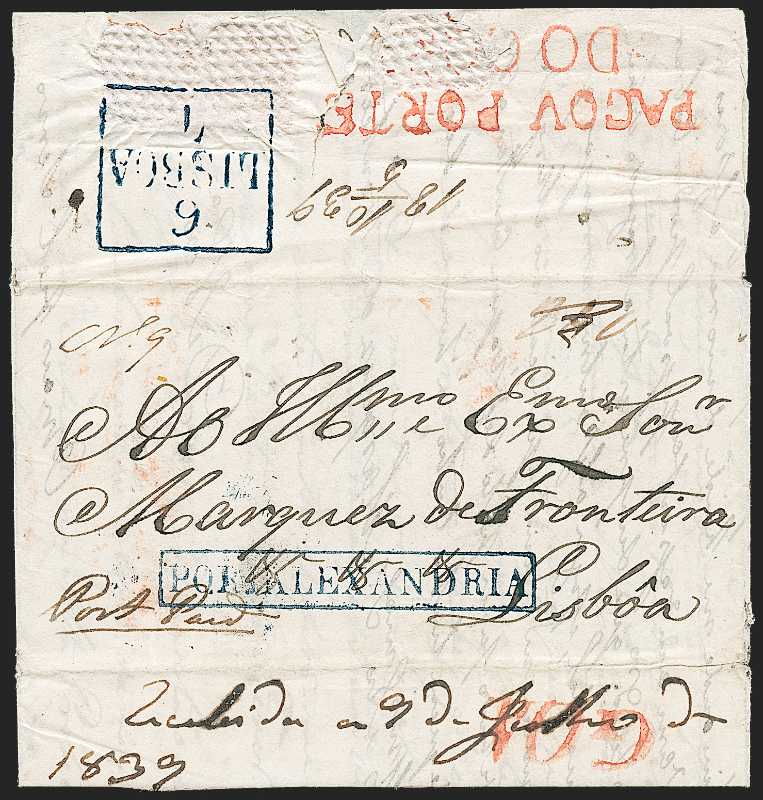 DO C
PAGOU PORTE
6
LISBOA
7
18 10/5 39
No. 9
Ao Illmo e Exmo Sonr
Marquez de Fronteira
POR ALEXANDRIA
Lisbôa
Port Paid
Recebida a 9 de Julho de
1839